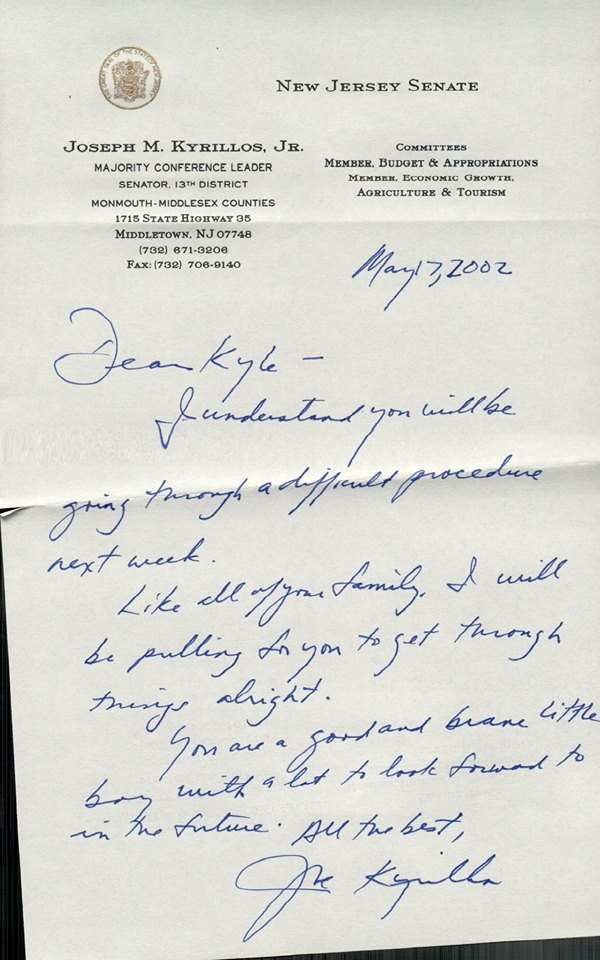 THE GREAT SEAL OF THE STATE OF NEW JERSEY
NEW JERSEY SENATE
JOSEPH M. KYRILLOS, JR.
MAJORITY CONFERENCE LEADER
SENATOR, 13TH DISTRICT
MONMOUTH-MIDDLESEX COUNTIES
1715 STATE HIGHWAY 35
MIDDLETOWN, NJ 07748
(732) 671-3206
FAX: (732) 706-9140
COMMITTEES
MEMBER, BUDGET & APPROPRIATIONS
MEMBER, ECONOMIC GROWTH,
AGRICULTURE & TOURISM
May 17, 2002
Dear Kyle —
I understand you will be
going through a difficult procedure
next week.
Like all of your family, I will
be pulling for you to get through
things alright.
You are a good and brave little
boy with a lot to look forward to
in the future. All the best,
Joe Kyrillos